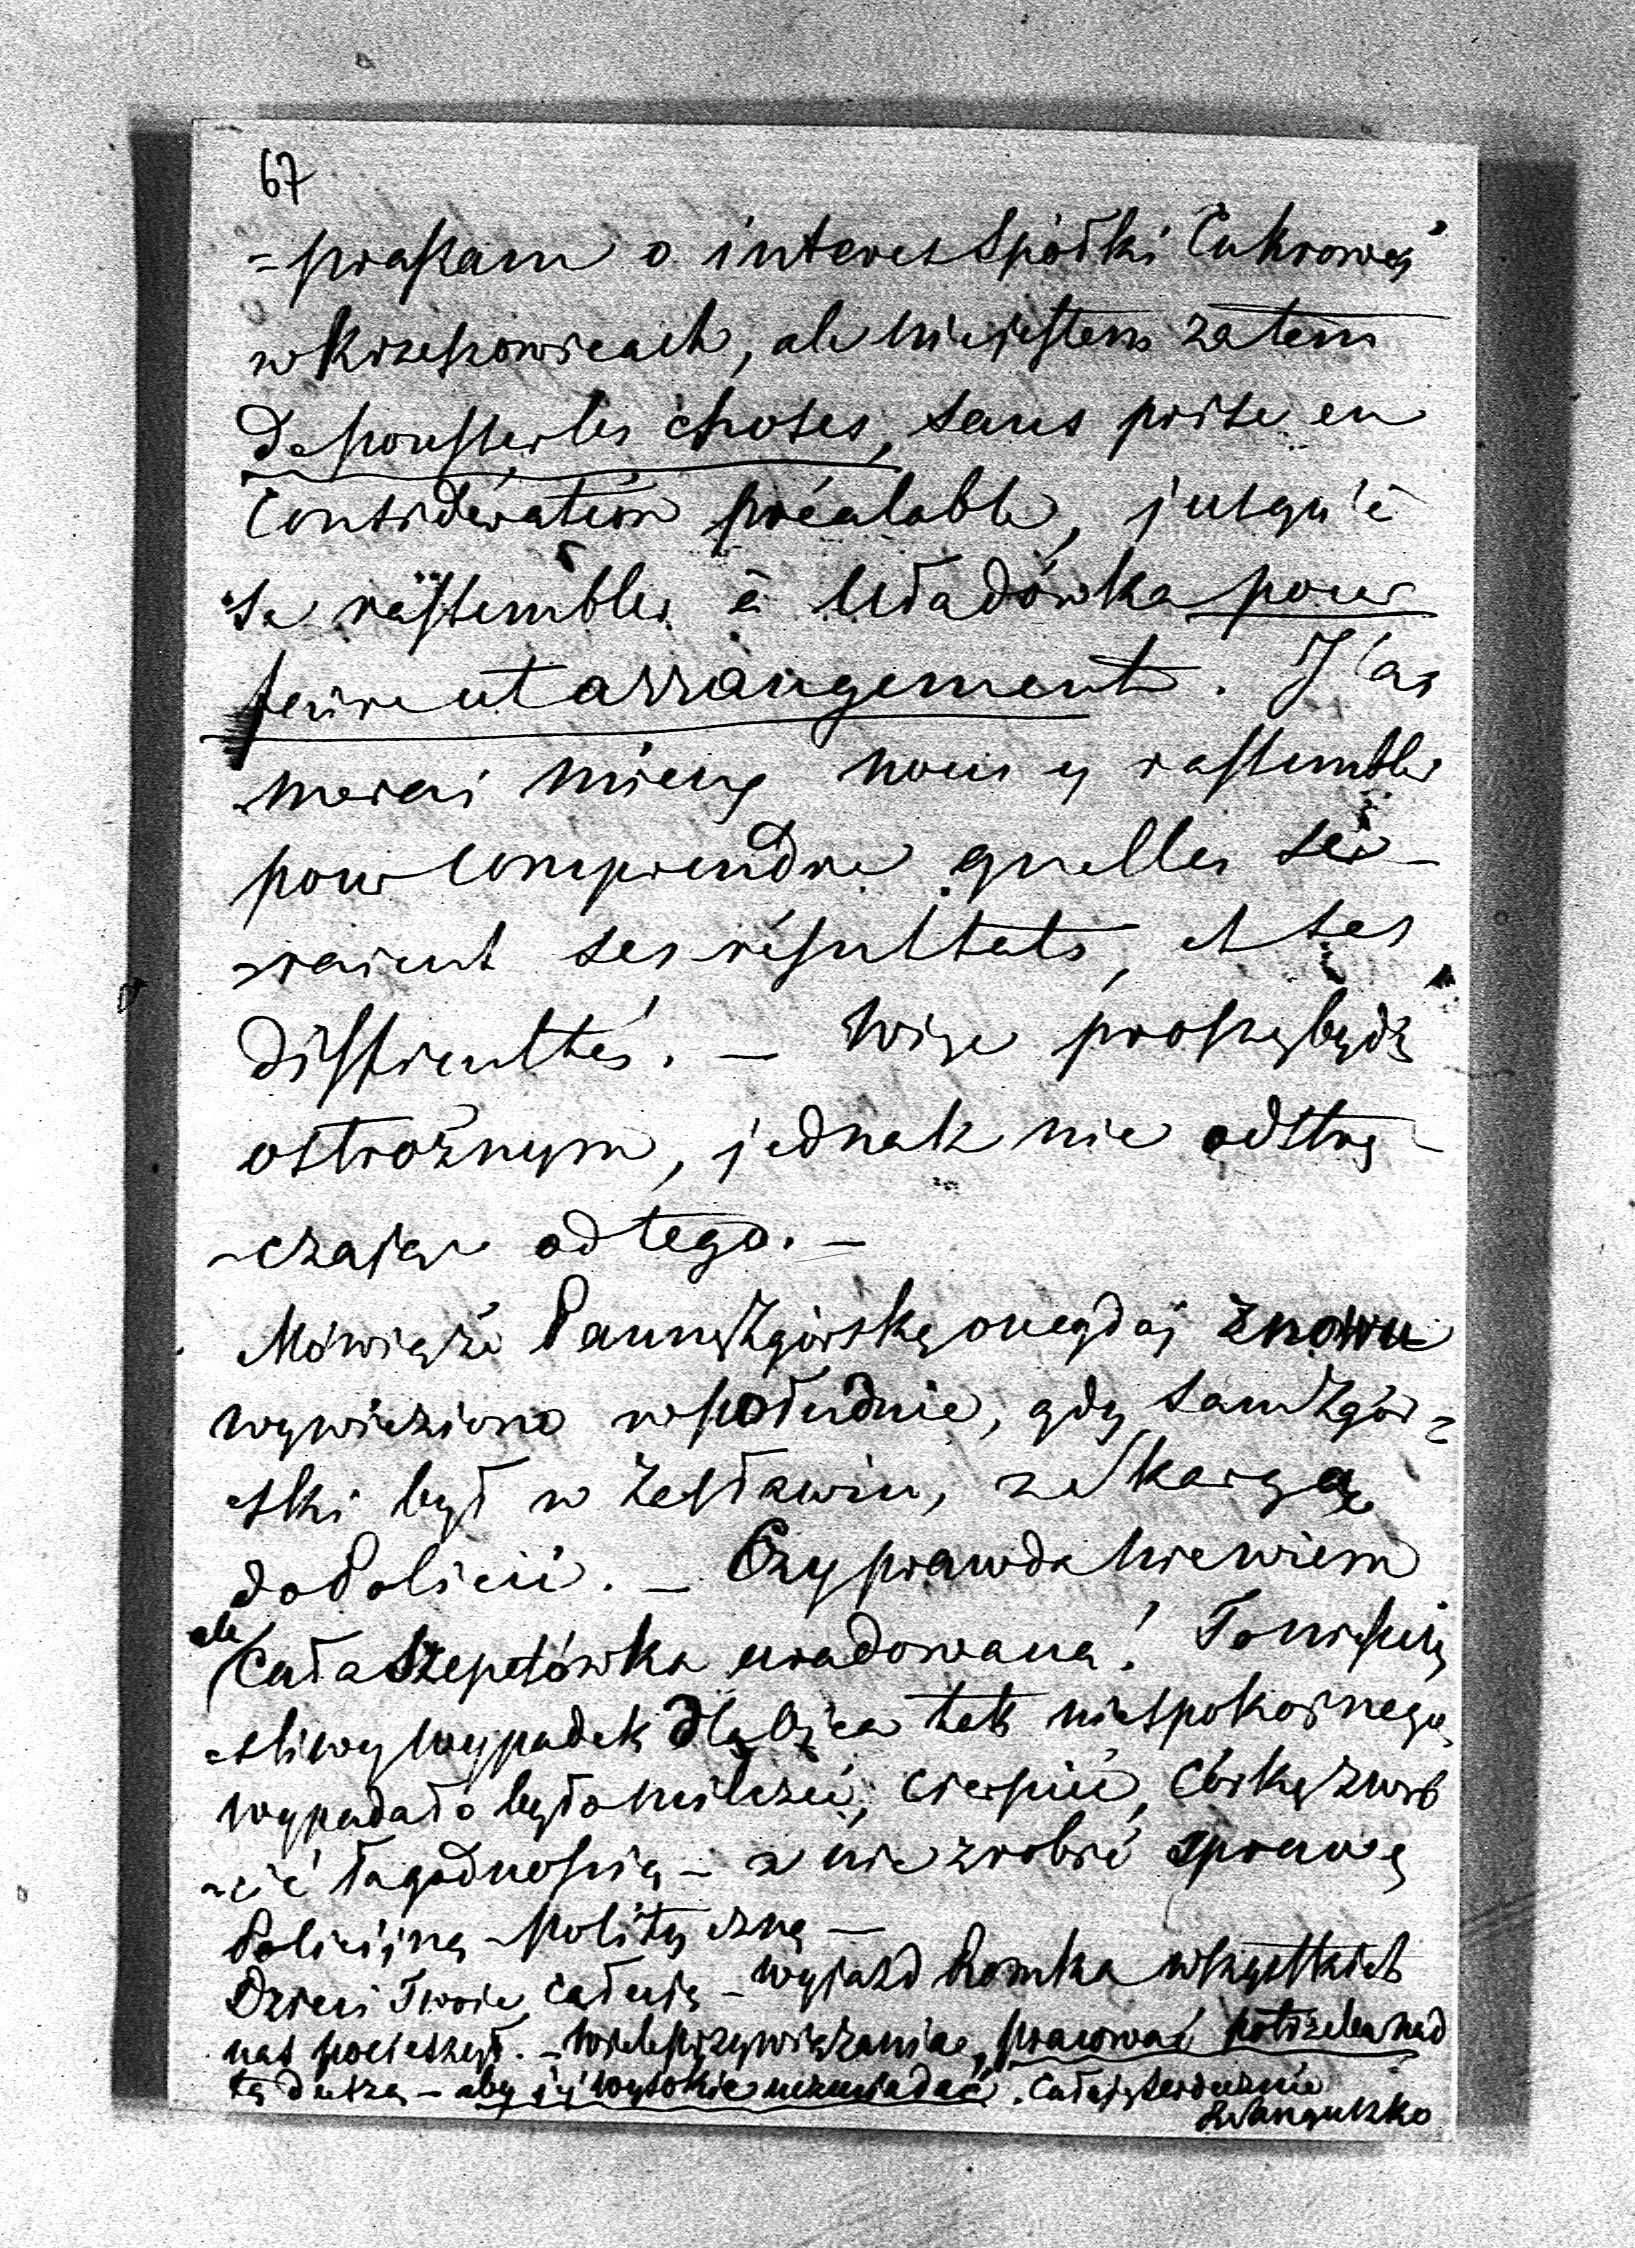 67
=praszam o interes Spółki Cukrowej
w Krzeszowicach, ale nie jestem zatem
de pousser les choses, sans prise en
considération préalable, jusqu'à
se rassembler à Władówka pour
faire cet arrangement. J'ai
merai mieux nous y rassembler
pour comprendre quelles se-
raient ses résultats, et ses
difficultés. — Więc proszę być
ostrożnym, jednak nie odstrę-
-czając od tego. —
Mówią że Pannę Zgórską onegdaj znowu
wywieziono w południe, gdy sam Zgór=
ski był w Zasławiu, ze skargą
do Policii. — Czy prawda nie wiem
ale cała Szepetówka uradowana! To nieszczę
=śliwy wypadek dla ojca tak niespokojnego,
wypadało było milczeć, cierpieć, córkę zwró
-cić łagodnością — a nie zrobić sprawę
Policijną - polityczną —
Dzieci Twoie całuję — wyjazd Romka wszystkich
nas pocieszył. — Wiele przywiązania, pracować potrzeba nad
tą duszą — aby jej wysokie
całuję serdecznie
Sanguszko